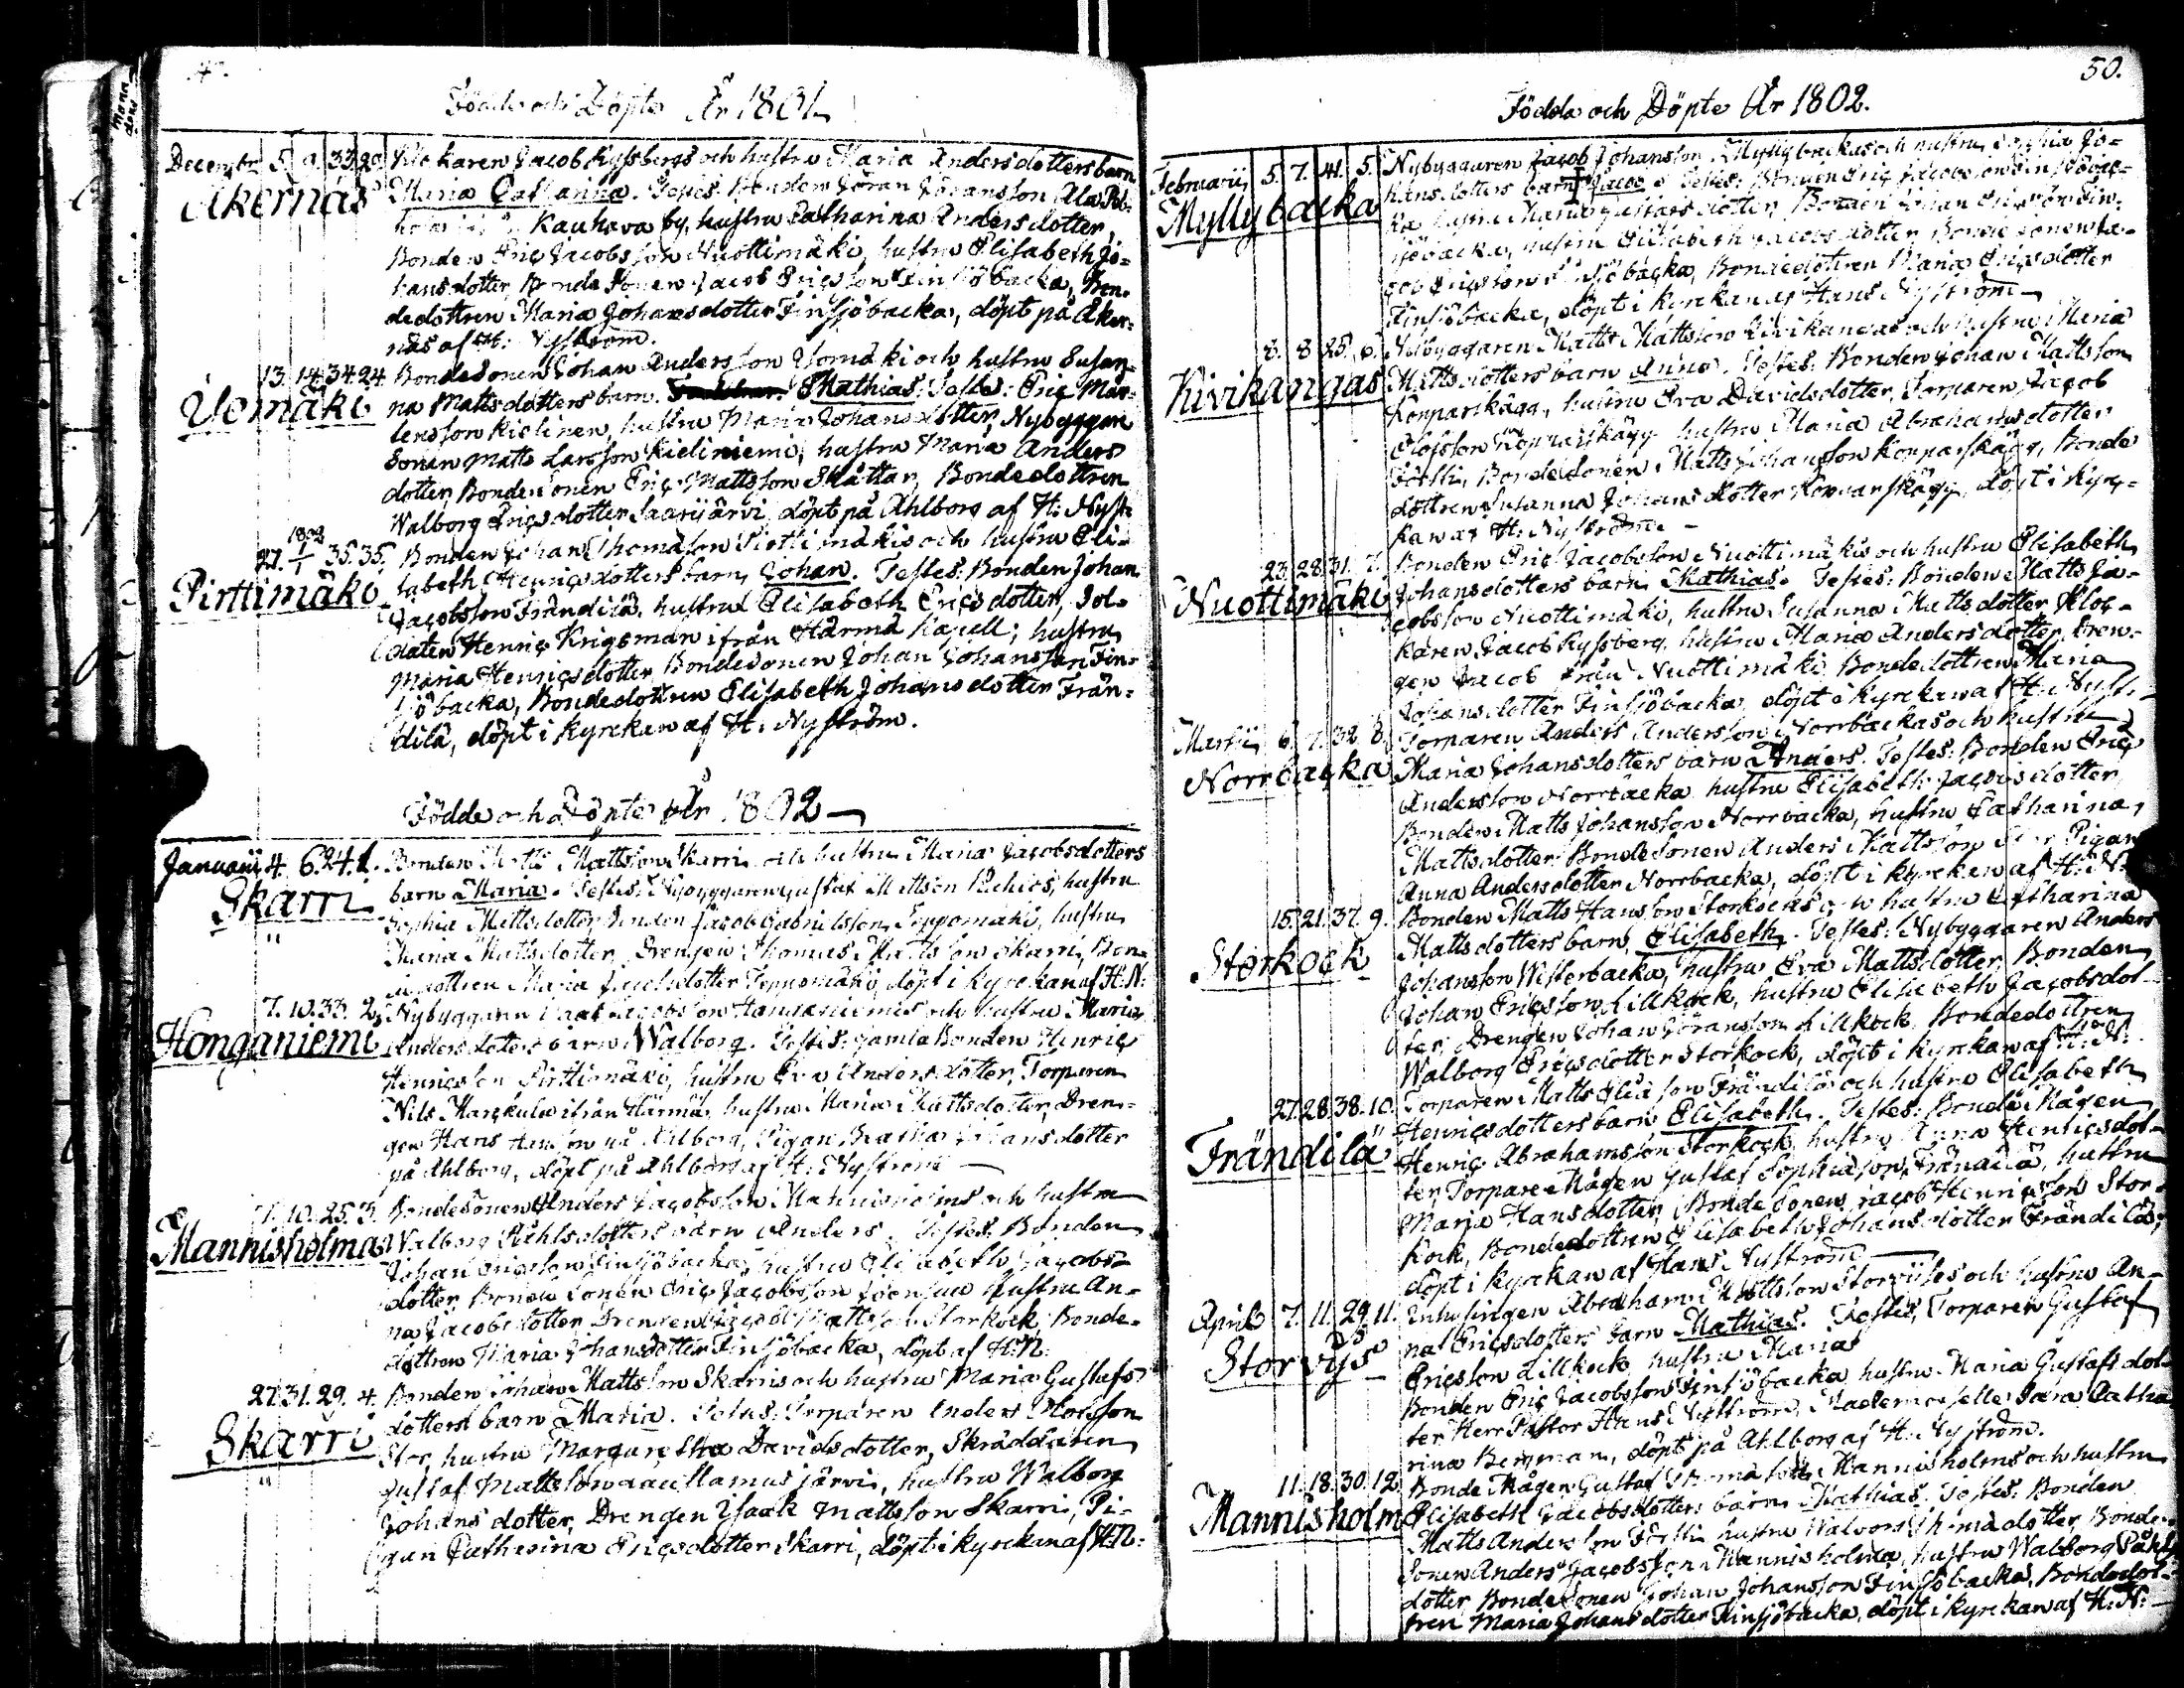 Födde och Döpte År 1801
Decembr 5. 9. 33. 20 Klockaren Jacob Kyssbergs och hustru Maria Andersdotters barn
Åkernäs Maria Catharina. Testes: Bonden Göran Göransson Ala
Kauhava by, hustru Catharina Andersdotter,
Bonden Eric Jacobsson Nuottimäki, hustru Elisabeth Jo-
hansdotter, Bonde Sonen Jacob Ericsson Finsjöbacka, Bon-
dedottren Maria Johansdotter Finsjöbacka, döpt på Åker-
näs af H. Nyström.
13. 14. 34. 24. Bondesonen Johan Andersson Isomäki och hustru Susan-
Isomäki na Mattsdotters barn. Mathias. Testes: Eric Mår-
tensson Kielinen, hustru Maria Johansdotter, Nybyggare
Sonen Matts Larsson Kieliniemi, hustru Maria Anders
dotter, Bondesonen Eric Mattsson Slåttar, Bondedottren
Walborg Ericsdotter Saarijärvi, döpt på Ahlborg af H: Nyst:
1802
27. 1/1 35. 35. Bonden Johan Thomasson Pirttimäkis och hustru Eli-
Pirttimäki sabeth Henricsdotters barn Johan. Testes: Bonden Johan
Jacobsson Frändilä, hustru Elisabeth Ericsdotter, Sol-
daten Henric Krigsman ifrån Härmä Kapell; hustru
Maria Henricsdotter, Bondesonen Johan Johansson Fin-
sjöbacka, Bondedottren Elisabeth Johansdotter Frän-
dilä, döpt i kyrckan af H. Nyström.
Födde och Döpte År 1802
Januarii 4. 6. 24. 1. Bonden Mattsson Skarri och hustru Maria Jacobsdotters
Skarri barn Maria. Testes: Nybyggaren Gustaf Mattsson hustru
Sophia Mattsdotter, Bonden Jacob Gabrielsson Seppomäki, hustru
Maria Mattsdotter, Drengen Thomas Mattsson Skarri, Bon-
dedottren Maria Jacobsdotter Seppomäki, döpt i kyrckan af H:N:
7. 10. 33. 2. Nybyggaren Isaak Jacobsson Honganiemis och hustru Maria
Honganiemi Andersdotters barn Walborg. Testes: gamla Bonden Henric
Henricsson Pirttimäki, hustru Eva Andersdotter, Torparen
Nils ifrån Härmä, hustru Maria Mattsdotter, Dren-
gen Hans Hansson på Ahlborg, Pigan Beatha Johansdotter
på Ahlborg, döpt på Ahlborg af H: Nyström
7. 10. 25. 3. Bondesonen Anders Jacobsson Mannisholms och hustru
Mannisholma Walborg Påhlsdotters barn Anders. Testes: Bonden
Johan Ericsson Finsjöbacka, hustru Elisabeth Jacobs-
dotter, Bonde Sonen Eric Jacobsson hustru An-
na Jacobsdotter, Drengen Jacob Mattsson Storkock, Bonde-
dottren Maria Johansdotter Finsjöbacka, döpt af H:N:
27. 31. 29. 4. Bonden Johan Mattsson Skarris och hustru Maria Gustafs
Skarri dotters barn Maria. Testes: Torparen Anders Olofsson
Stor, hustru Margaretha Davidsdotter, Skräddaren
Gustaf Mattsson Hamusjärvi, hustru Walborg
Johansdotter, Drengen Isaak Mattsson Skarri, Pi-
gan Catherina Ericsdotter Skarri, döpt i kyrckan af H:N:
50.
Födda och Döpte År 1802.
Februarij 5. 7. 41. 5. Nybyggaren Jacob Johansson Myllybackas och hustru Sophia Jo-
Myllybacka hansdotters barn Jacob. Testes: Bonden Eric Jacobsson Finsjöbac-
ka, hustru Maria Gustafsdotter, Bonden Johan Ericsson Fin-
sjöbacka, hustru Elisabeth Jacobsdotter, Bonde sonen Ja-
cob Ericsson Finsjöbacka, Bondedottren Maria Ericsdotter
Finsjöbacka, döpt i kyrckan af Hans Nyström
8. 8. 25. 6. Nybyggaren Matts Mattsson Kivikangas och hustru Maria
Kivikangas Mattsdotters barn Anna. Testes: Bonden Johan Mattsson
Kopparskägg, hustru Eva Davidsdotter, Torparen Jacob
Olofsson Kopparskägg, hustru Maria Abrahamsdotter
Bondesonen Matts Johansson Kopparskägg, Bonde
dottren Susanna Johansdotter Kopparskägg, döpt i kyrc-
kan af H: Nyström
23. 28. 31. 7. Bonden Eric Jacobsson Nuottimäkis och hustru Elisabeth
Nuottimäki Johansdotters barn Mathias. Testes: Bonden Matts Ja-
cobsson Nuottimäki, hustru Susanna Mattsdotter, Kloc-
karen Jacob Kyssberg, hustru Maria Andersdotter, Dren-
gen Jacob från Nuottimäki, Bondedottren Maria
Johansdotter Finsjöbacka, döpt i kyrckan af H: Nyst:
Martii 6. 7. 32. 8. Torparen Anders Andersson Norrbackas och hustru
Norrbacka Maria Johansdotters barn Anders. Testes: Bonden Eric
Andersson Norrbacka, hustru Elisabeth Jacobsdotter
Bonden Matts Johansson Norrbacka, hustru Catharina
Mattsdotter, Bondesonen Anders Mattsson Stor, Pigan
Anna Andersdotter Norrbacka, döpt i kyrckan af H: N:
15. 21. 37. 9. Bonden Matts Hansson Storkocks och hustru Catharina
Storkock Mattsdotters barn Elisabeth. Testes: Nybyggaren Anders
Johansson Westerbacka, hustru Eva Mattsdotter, Bonden
Johan Ericsson Lillkock, hustru Elisabeth Jacobsdot-
ter, Drengen Johan Göransson Lillkock, Bondedottren
Walborg Ericsdotter Storkock, döpt i kyrckan af H: N:
27. 28. 38. 10. Torparen Matts Eliasson Frändiläs och hustru Elisabeth
Frändilä Henricsdotters barn Elisabeth. Testes: Bonde Mågen
Henric Abrahamsson Storkock, hustru Anna Henricsdot-
ter, Torpare Mågen Gustaf Sophiasson Frändilä, hustru
Maria Hansdotter, Bonde Sonen Jacob Henricsson Stor-
kock, Bondedottren Elisabeth Johansdotter Frändilä;
döpt i kyrckan af Hans Nyström
April 7. 11. 29. 11. Inhysingen Abraham Mattsson Storvijses och hustru An-
Storvijs na Ericsdotters barn Mathias. Testes, Torparen Gustaf
Ericsson Lillkock, hustru Maria
Bonden Eric Jacobsson Finsjöbacka, hustru Maria Gustafsdot-
ter, Herr Pastor Hans Nyström, Mademoiselle Sara Catha-
rina Bergman, döpt på Ahlborg af H: Nyström.
11. 18. 30. 12. Bonde Mågen Gustaf Thomasson Mannisholms och hustru
Mannisholm Elisabeth Jacobsdotters barn Mathias. Testes: Bonden
Matts Andersson Forsti, hustru Walborg Thomadotter, Bonde-
Sonen Anders Jacobsson Mannisholma, hustru Walborg Påhls
dotter, Bondesonen Johan Johansson Finsjöbacka, Bondedot-
tren Maria Johansdotter Finsjöbacka, döpt i kyrckan af H:N: